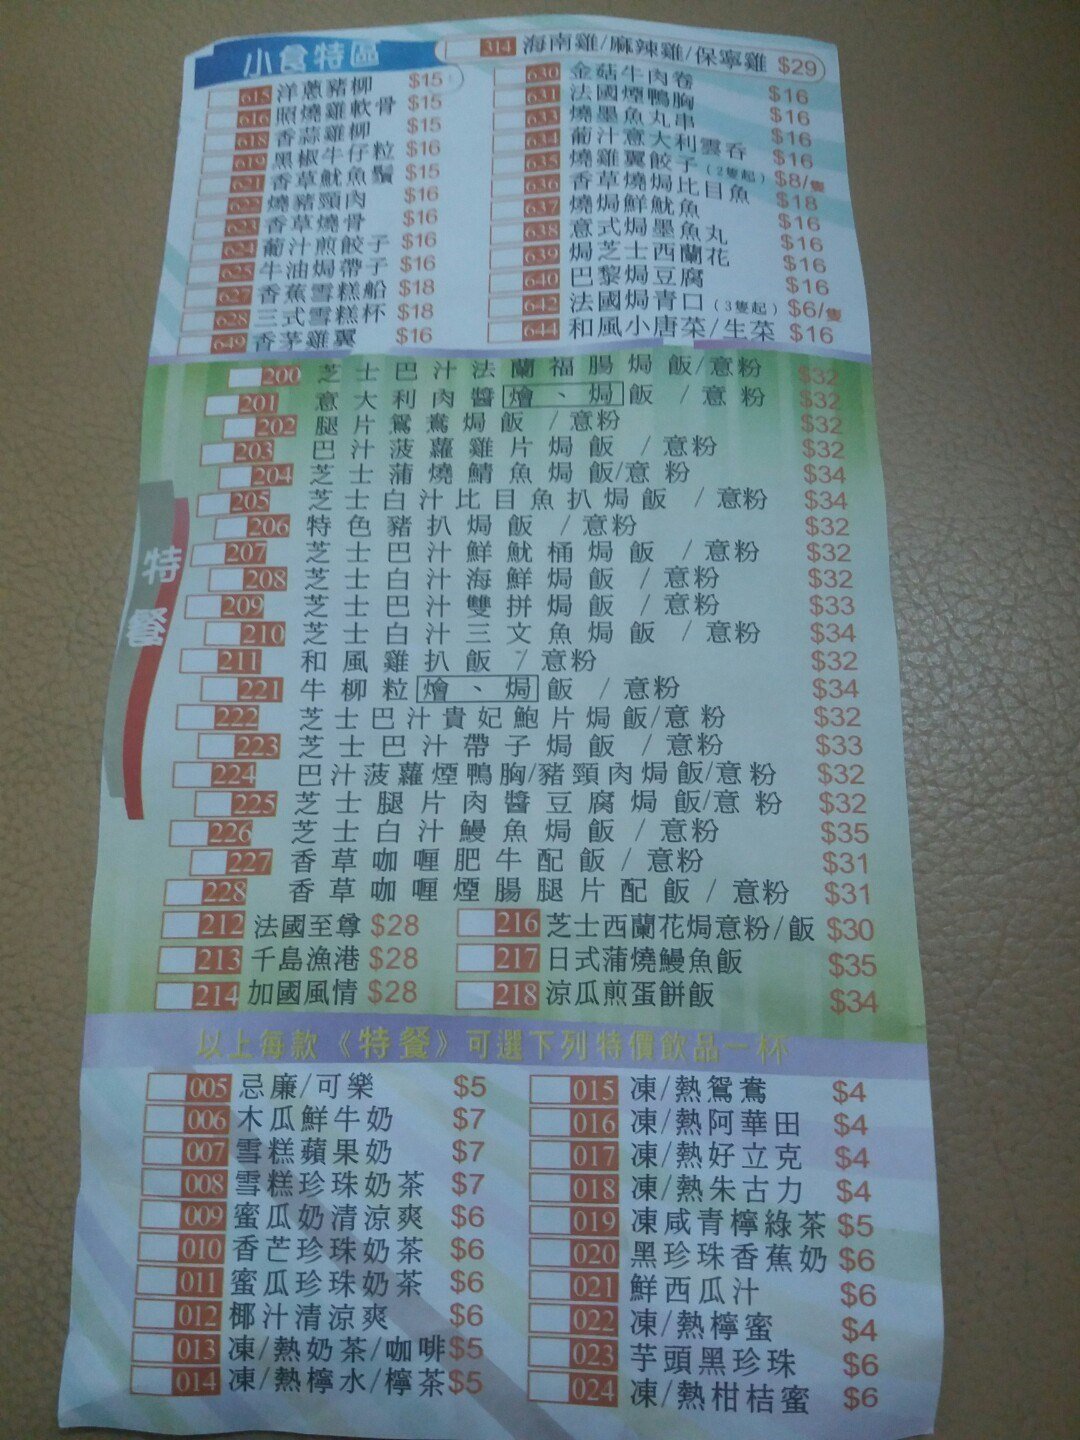 小食特區
314 海南雞/麻辣雞/保寧雞 $29
615 洋蔥豬柳 $15
616 照燒雞軟骨 $15
618 香蒜雞柳 $15
619 黑椒牛仔粒 $16
621 香草魷魚鬚 $15
622 燒豬頸肉 $16
623 香草燒骨 $16
624 葡汁煎餃子 $16
625 牛油焗帶子 $16
627 香蕉雪糕船 $18
628 三式雪糕杯 $18
649 香茅雞翼 $16
630 金菇牛肉卷 $16
631 法國煙鴨胸 $16
633 燒墨魚丸串 $16
634 葡汁意大利雲吞 $16
635 燒雞翼餃子(2隻起) $8/隻
636 香草燒焗比目魚 $18
637 燒焗鮮魷魚 $16
638 意式焗墨魚丸 $16
639 焗芝士西蘭花 $16
640 巴黎焗豆腐 $16
642 法國焗青口(3隻起) $6/隻
644 和風小唐菜/生菜 $16
特餐
200 芝士巴汁法蘭福腸焗飯/意粉 $32
201 意大利肉醬燴、焗飯/意粉 $32
202 腿片鴛鴦焗飯/意粉 $32
203 巴汁菠蘿雞片焗飯/意粉 $32
204 芝士蒲燒鯖魚焗飯/意粉 $34
205 芝士白汁比目魚扒焗飯/意粉 $34
206 特色豬扒焗飯/意粉 $32
207 芝士巴汁鮮魷桶焗飯/意粉 $32
208 芝士白汁海鮮焗飯/意粉 $32
209 芝士巴汁雙拼焗飯/意粉 $33
210 芝士白汁三文魚焗飯/意粉 $34
211 和風雞扒飯/意粉 $32
221 牛柳粒燴、焗飯/意粉 $34
222 芝士巴汁貴妃鮑片焗飯/意粉 $32
223 芝士巴汁帶子焗飯/意粉 $33
224 巴汁菠蘿煙鴨胸/豬頸肉焗飯/意粉 $32
225 芝士腿片肉醬豆腐焗飯/意粉 $32
226 芝士白汁鰻魚焗飯/意粉 $35
227 香草咖喱肥牛配飯/意粉 $31
228 香草咖喱煙腸腿片配飯/意粉 $31
212 法國至尊 $28
213 千島漁港 $28
214 加國風情 $28
216 芝士西蘭花焗意粉/飯 $30
217 日式蒲燒鰻魚飯 $35
218 涼瓜煎蛋餅飯 $34
以上每款《特餐》可選下列特價飲品一杯
005 忌廉/可樂 $5
006 木瓜鮮牛奶 $7
007 雪糕蘋果奶 $7
008 雪糕珍珠奶茶 $7
009 蜜瓜奶清涼爽 $6
010 香芒珍珠奶茶 $6
011 蜜瓜珍珠奶茶 $6
012 椰汁清涼爽 $6
013 凍/熱奶茶/咖啡 $5
014 凍/熱檸水/檸茶 $5
015 凍/熱鴛鴦 $4
016 凍/熱阿華田 $4
017 凍/熱好立克 $4
018 凍/熱朱古力 $4
019 凍咸青檸綠茶 $5
020 黑珍珠香蕉奶 $6
021 鮮西瓜汁 $6
022 凍/熱檸蜜 $4
023 芋頭黑珍珠 $6
024 凍/熱柑桔蜜 $6